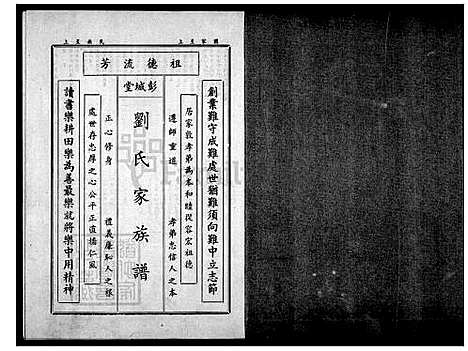 國家至上
民族至上
祖德流芳
彭城堂
創業難守成難處世猶難須向難中立志節
居家敦孝弟為本和睦從容宏祖德
尊師重道
孝弟忠信人之本
劉氏家族譜
正心修身
禮義廉恥人之根
處世存忠厚之心公平正直揚仁風
讀書樂耕田樂為善最樂就將樂中用精神